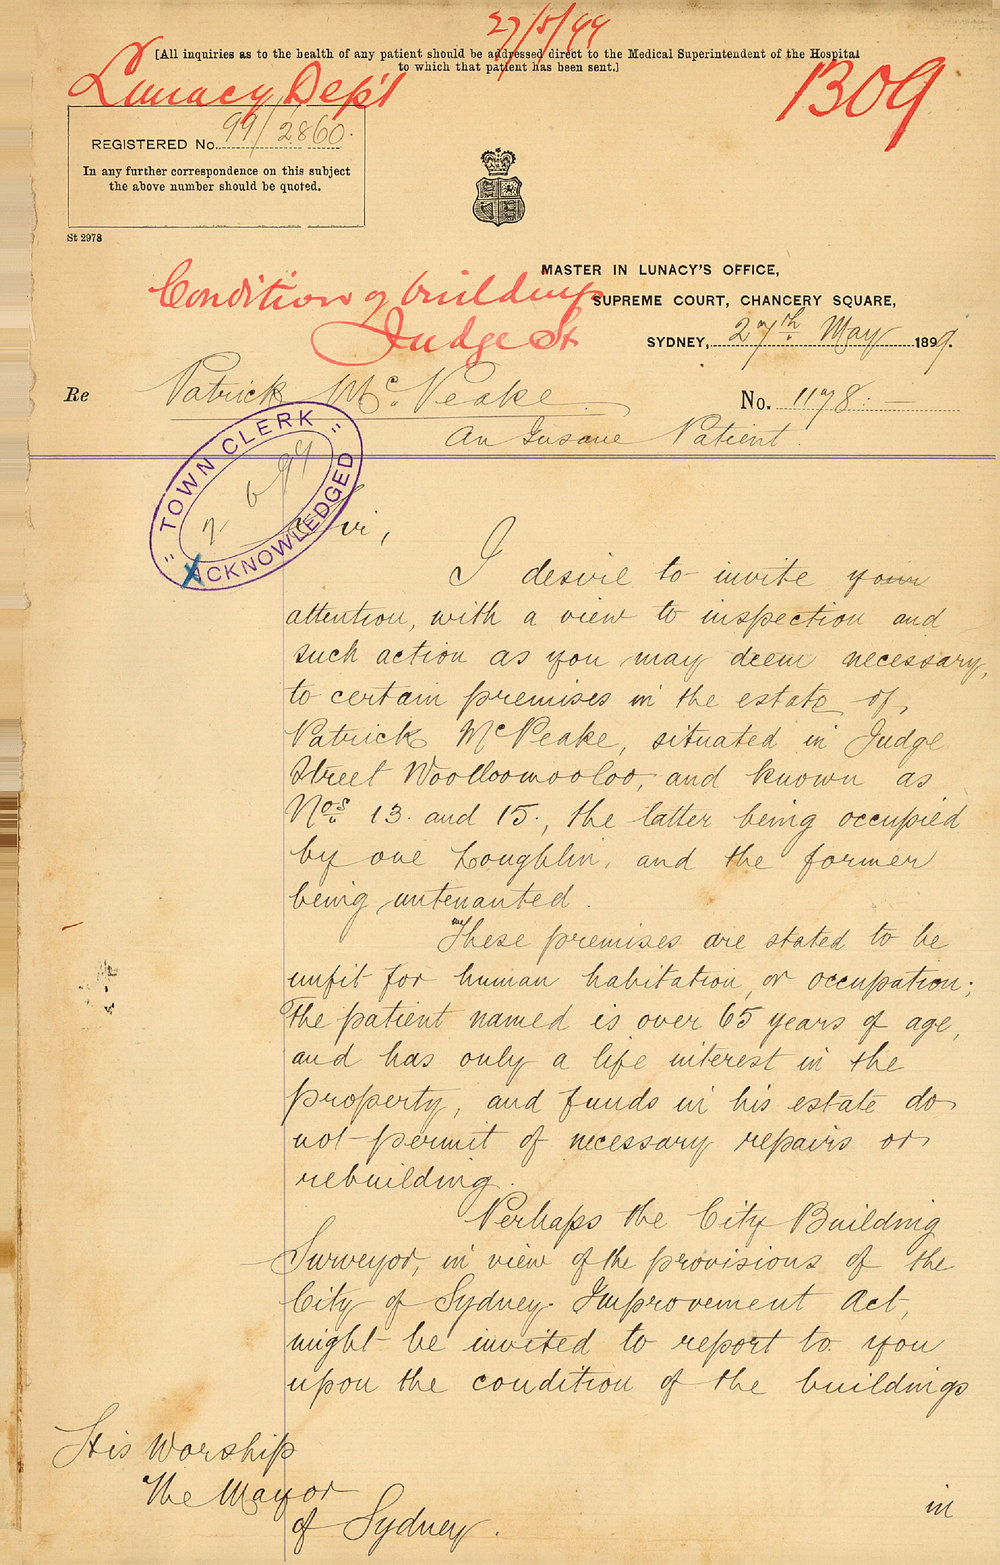 27/5/99
[All inquiries as to the health of any patient should be addressed direct to the Medical Superintendent of the Hospital
to which that patient has been sent.]
Lunacy Dep't
1309
REGISTERED No. 99/2860.
In any further correspondence on this subject
the above number should be quoted.
St 2978
MASTER IN LUNACY'S OFFICE,
Condition of buildings
SUPREME COURT, CHANCERY SQUARE,
Judge St
SYDNEY, 27th May 1899.
Re Patrick McPeake No. 1178.
An Insane Patient.
"TOWN CLERK"
2 6 99
ACKNOWLEDGED
Sir,
I desire to invite your
attention, with a view to inspection and
such action as you may deem necessary,
to certain premises in the estate of
Patrick McPeake, situated in Judge
Street Woolloomooloo, and known as
Nos 13. and 15., the latter being occupied
by one Loughlin, and the former
being untenanted.
These premises are stated to be
unfit for human habitation, or occupation;
The patient named is over 65 years of age,
and has only a life interest in the
property, and funds in his estate do
not permit of necessary repairs or
rebuilding.
Perhaps the City Building
Surveyor, in view of the provisions of the
City of Sydney Improvement Act,
might be invited to report to you
upon the condition of the buildings
His Worship
The Mayor
of Sydney.
in